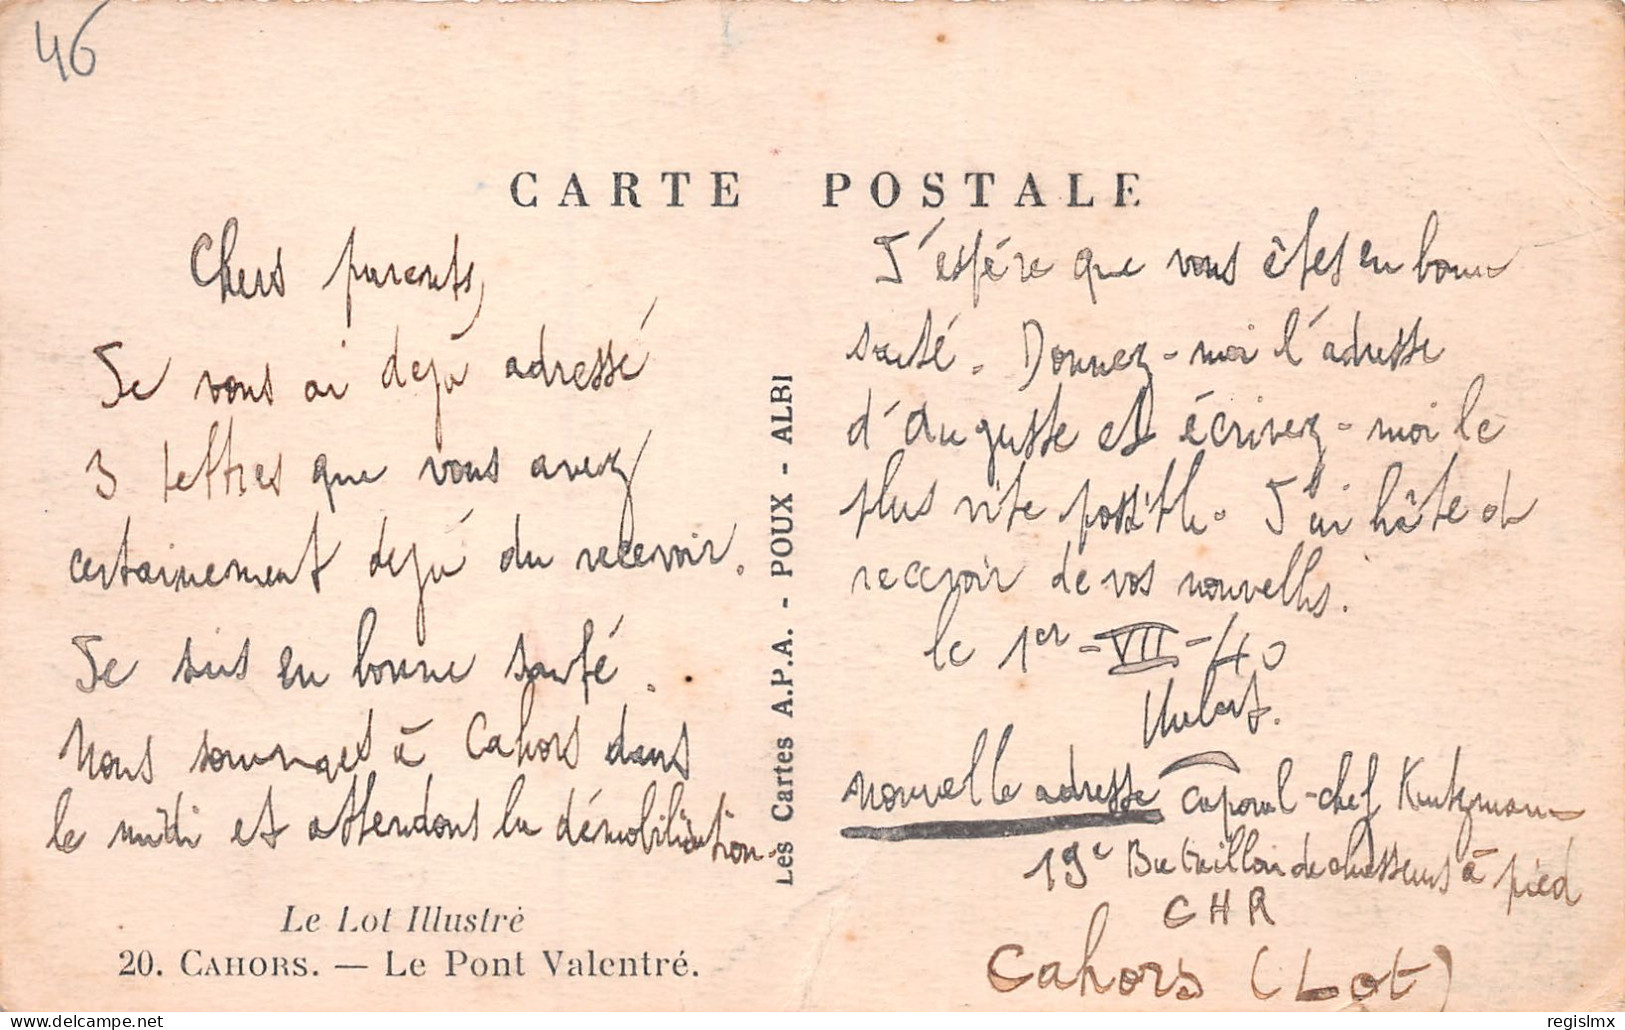 46
CARTE POSTALE
Chers parents,
Je vous ai dejà adressé
3 lettres que vous avez
certainement dejà du recevoir.
Je suis en bonne santé.
Nous sommes à Cahors dans
le midi et attendons la démobilisation.
Le Lot Illustré
20. CAHORS. — Le Pont Valentré.
Les Cartes A.P.A. - POUX - ALBI
J'espére que vous êtes en bonne
santé. Donnez-moi l'adresse
d'Auguste et écrivez-moi le
plus vite possible. J'ai hâte de
recevoir de vos nouvelles.
le 1er - VII - 40
Hubert.
nouvelle adresse caporal-chef Kuntzmann
19e Bataillon de chasseurs à pied
CHR
Cahors (Lot)
www.delcampe.net
regislmx